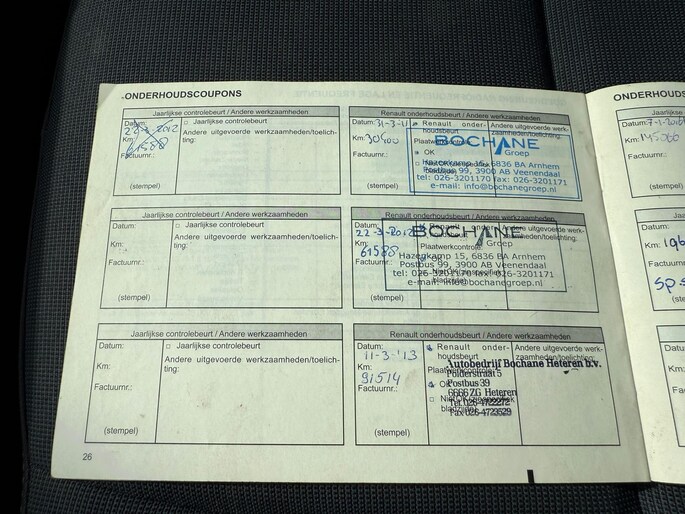 ONDERHOUDSCOUPONS
Jaarlijkse controlebeurt / Andere werkzaamheden
Datum:
22-3-2012
Km:
61588
Factuurnr.:
(stempel)
□ Jaarlijkse controlebeurt
Andere uitgevoerde werkzaamheden/toelich-
ting:
Renault onderhoudsbeurt / Andere werkzaamheden
Datum: 31-3-11
Km: 30400
Factuurnr.:
(stempel)
Renault onder-
houdsbeurt
Andere uitgevoerde werk-
OK
BOCHANE
Groep
Hazenkamp 15, 6836 BA Arnhem
Postbus 99, 3900 AB Veenendaal
tel: 026-3201170 fax: 026-3201171
e-mail: info@bochanegroep.nl
Jaarlijkse controlebeurt / Andere werkzaamheden
Datum:
Km:
Factuurnr.:
(stempel)
□ Jaarlijkse controlebeurt
Andere uitgevoerde werkzaamheden/toelich-
ting:
Renault onderhoudsbeurt / Andere werkzaamheden
Datum:
22-3-2012
Km:
61588
Factuurnr.:
(stempel)
Plaatwerkcontrole:
BOCHANE
Groep
Hazenkamp 15, 6836 BA Arnhem
Postbus 99, 3900 AB Veenendaal
tel: 026-3201170 fax: 026-3201171
e-mail: info@bochanegroep.nl
Jaarlijkse controlebeurt / Andere werkzaamheden
Datum:
Km:
Factuurnr.:
(stempel)
□ Jaarlijkse controlebeurt
Andere uitgevoerde werkzaamheden/toelich-
ting:
Renault onderhoudsbeurt / Andere werkzaamheden
Datum:
11-3-'13
Km:
91514
Factuurnr.:
(stempel)
Renault onder-
houdsbeurt
Andere uitgevoerde werk-
zaamheden/toelichting:
OK
Autobedrijf Bochane Heteren b.v.
Polderstraat 5
Postbus 39
6666 ZG Heteren
Tel. 026-4722272
Fax 026-4723529
26
ONDERHOUDS
Jaarlijkse
Datum:
Km:
Factuurnr.:
(stempel)
Datum:
Km: 196
Factuurnr.:
(stempel)
Km:
Factuurnr.:
(stempel)